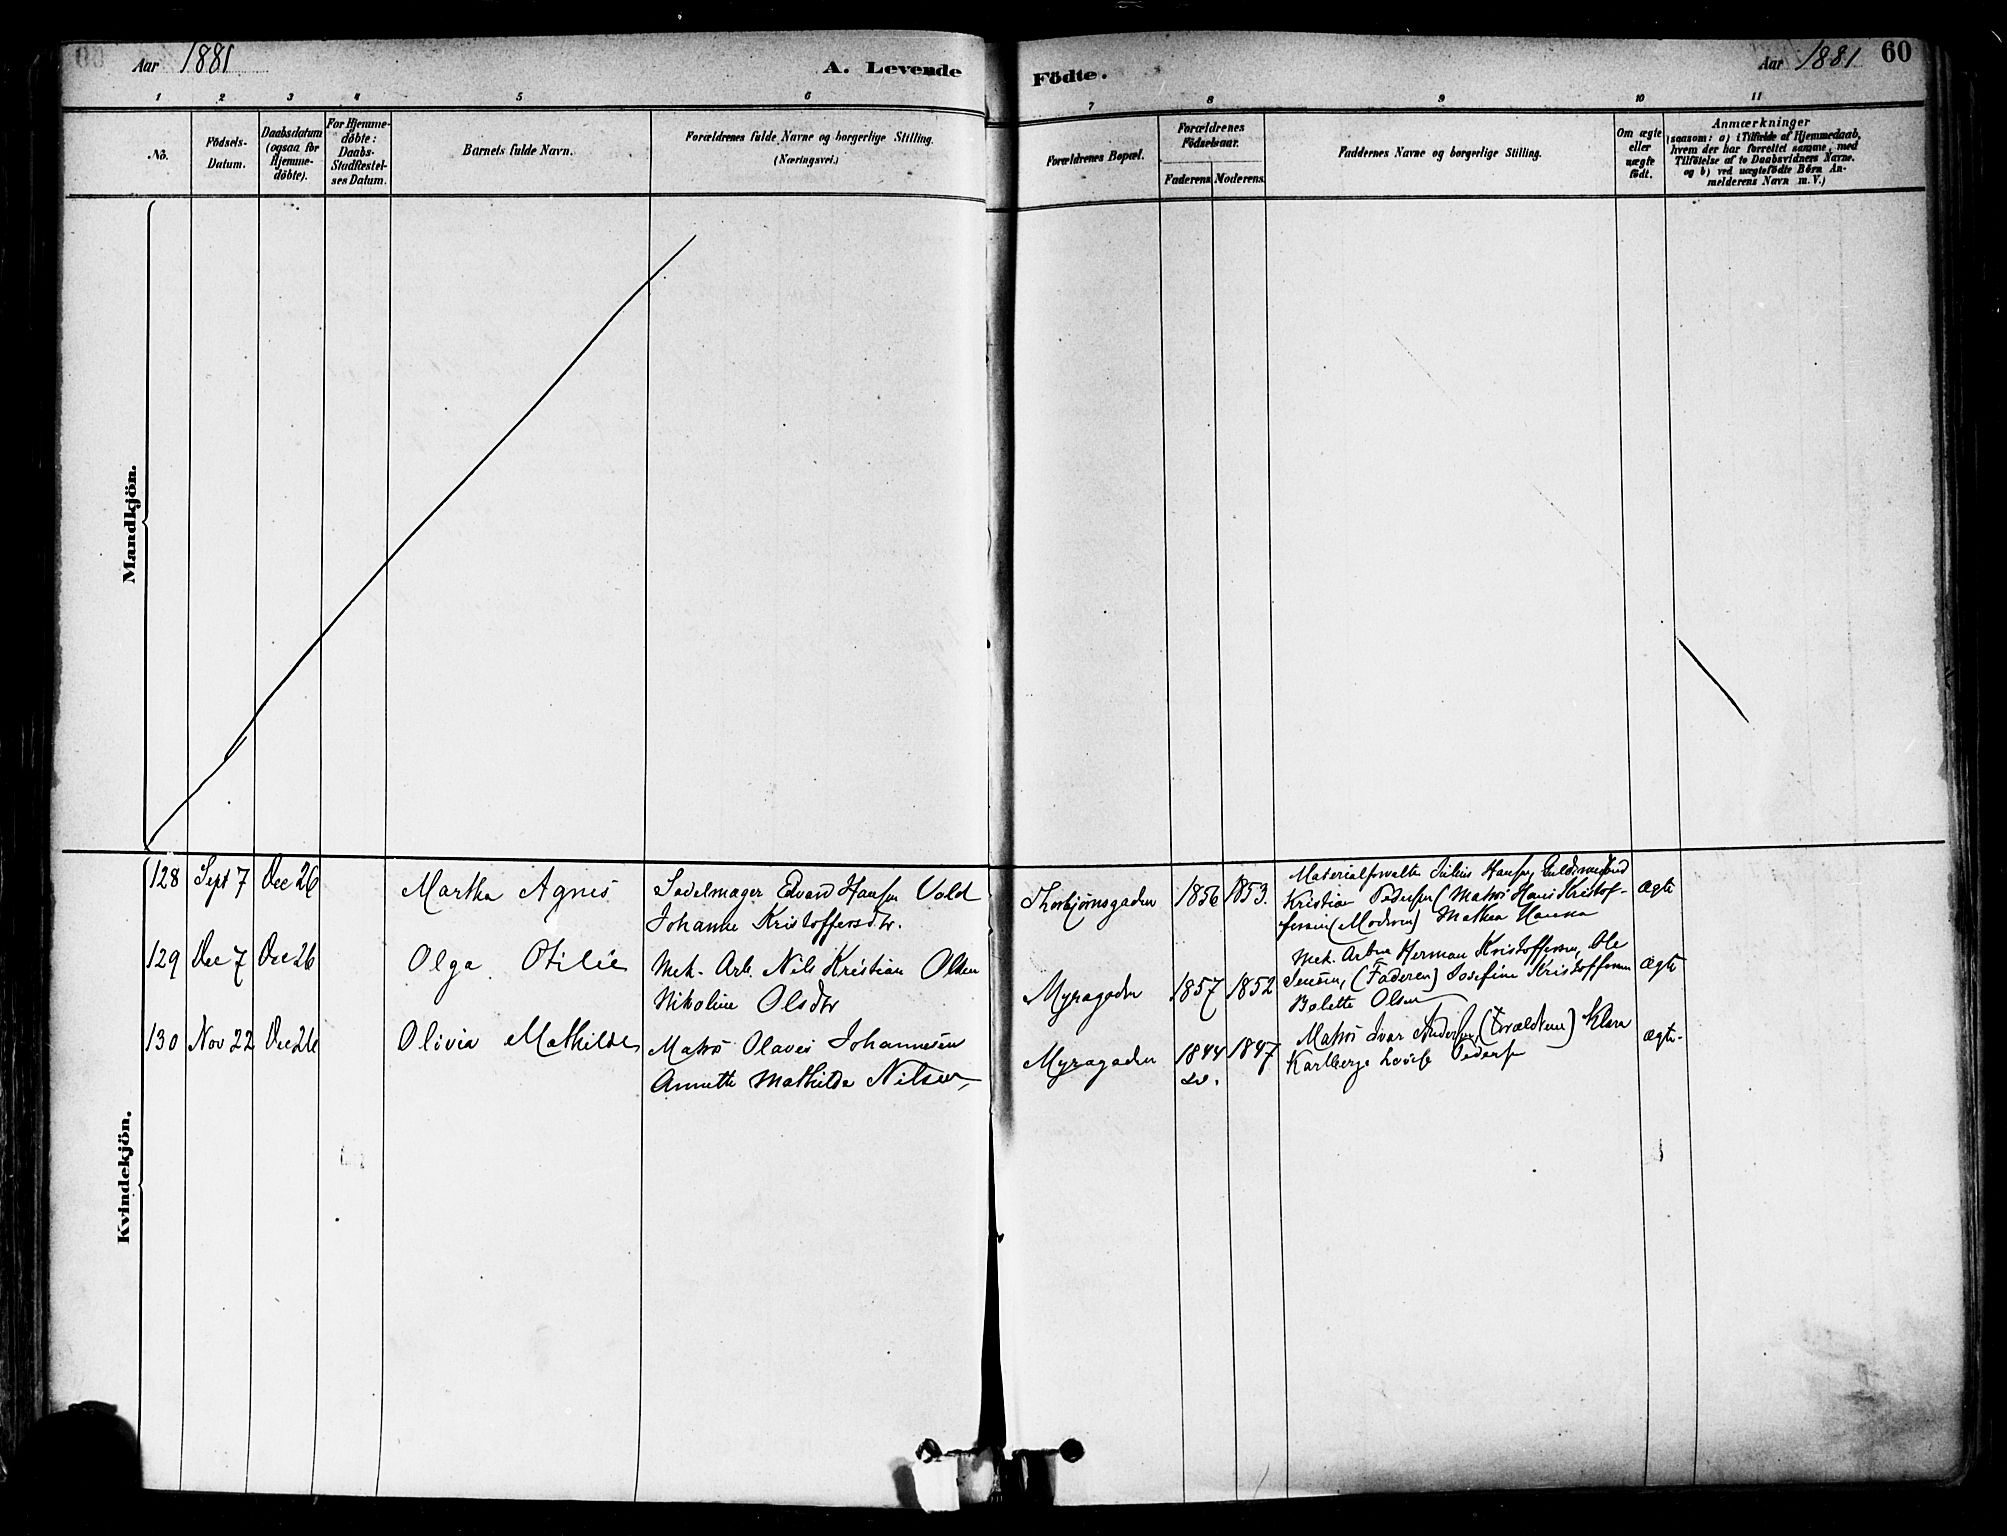 Aar 1881
A. Levende
Födte.
Aar 1881
60
1 2 3 4 5 6 7 8 9 10 11
No.
Födsels-
Datum.
Daabsdatum
(ogsaa for
Hjemme-
döbte).
For Hjemme-
döbte:
Daabs-
Stadfæstel-
ses Datum.
Barnets fulde Navn.
Forældrenes fulde Navne og borgerlige Stilling.
(Næringsvei.)
Forældrenes Bopæl.
Forældrenes
Födselsaar.
Faderens. Moderens.
Faddernes Navne og borgerlige Stilling.
Om ægte
eller
uægte
födt.
Anmærkninger
(saasom: a) i Tilfælde af Hjemmedaab,
hvem der har forrettet samme, med
Tilföielse af to Daabsvidners Navne.
og b) ved uægtefödte Börn An-
melderens Navn m. V.)
Mandkjön.
Kvindekjön.
128 Sept 7 Dec 26 Martha Agnes
Sadelmager Edvard Hansen Vold
Johanne Kristoffersdtr.
Thorbjørnsgaden 1856 1853.
Materialforvalter Julius Hansen,
Kristian Pedersen (Matros Hans Kristof-
fersen (Moderen) Mathea Hansen
ægte
129 Dec 7 Dec 26 Olga Otilie
Mek. Arb. Nils Kristian Olsen
Nikoline Olsdtr
Myragaden 1857 1852
Mek. Arbne Herman Kristoffersen, Ole
Jensen, (Faderen) Josefine Kristoffersen
Bolette Olsen
ægte
130 Nov 22 Dec 26 Olivia Mathilde
Matros Olaves Johannesen
Annette Mathilde Nilsen,
Myragaden 1844 1847
Matros Ivar Andersen, (Forældrene) Klara
Karlberg, Lovise Pedersen
ægte.